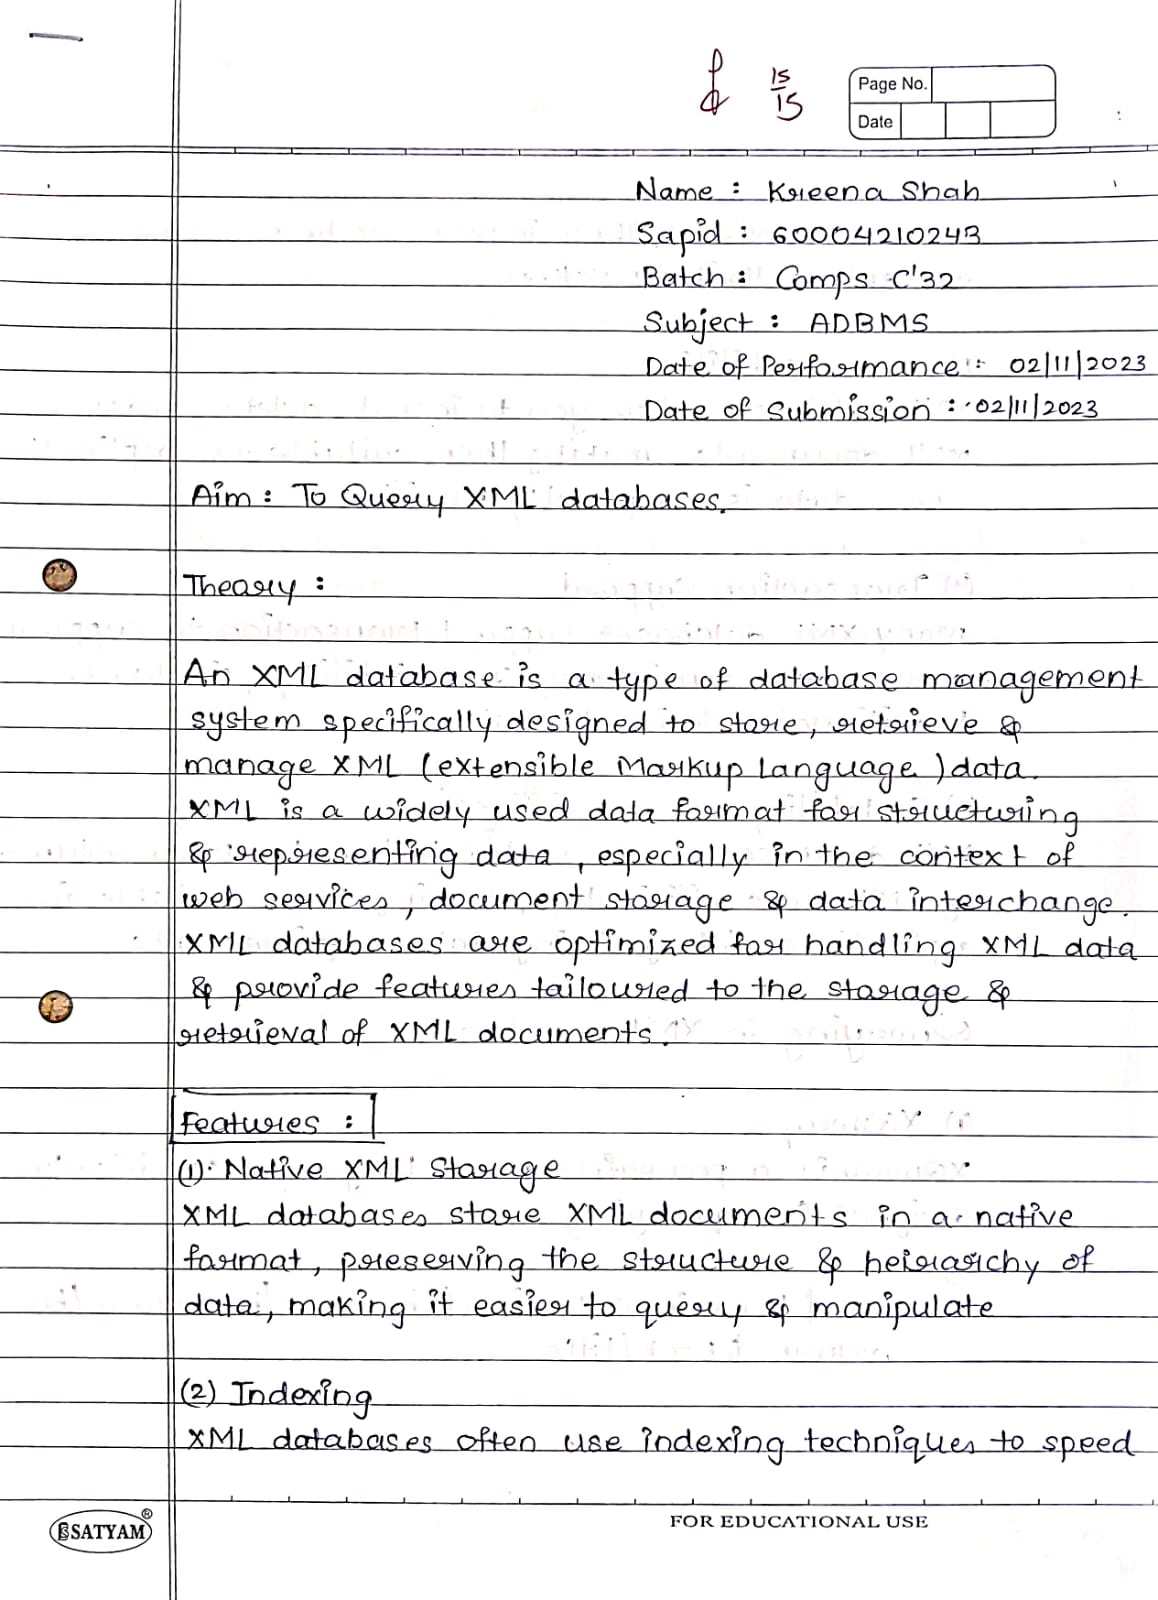 15
15
Page No.
Date
Name : Kreena Shah
Sapid : 60004210243
Batch : Comps C'32
Subject : ADBMS
Date of Performance : 02/11/2023
Date of Submission : 02/11/2023
Aim : To Query XML databases.
Theory :
An XML database is a type of database management
system specifically designed to store, retrieve &
manage XML (extensible Markup Language) data.
XML is a widely used data format for structuring
& representing data, especially in the context of
web services, document storage & data interchange.
XML databases are optimized for handling XML data
& provide features tailoured to the storage &
retrieval of XML documents.
Features :
(1) Native XML Storage
XML databases store XML documents in a native
format, preserving the structure & heirarchy of
data, making it easier to query & manipulate
(2) Indexing
XML databases often use indexing techniques to speed
SATYAM®
FOR EDUCATIONAL USE